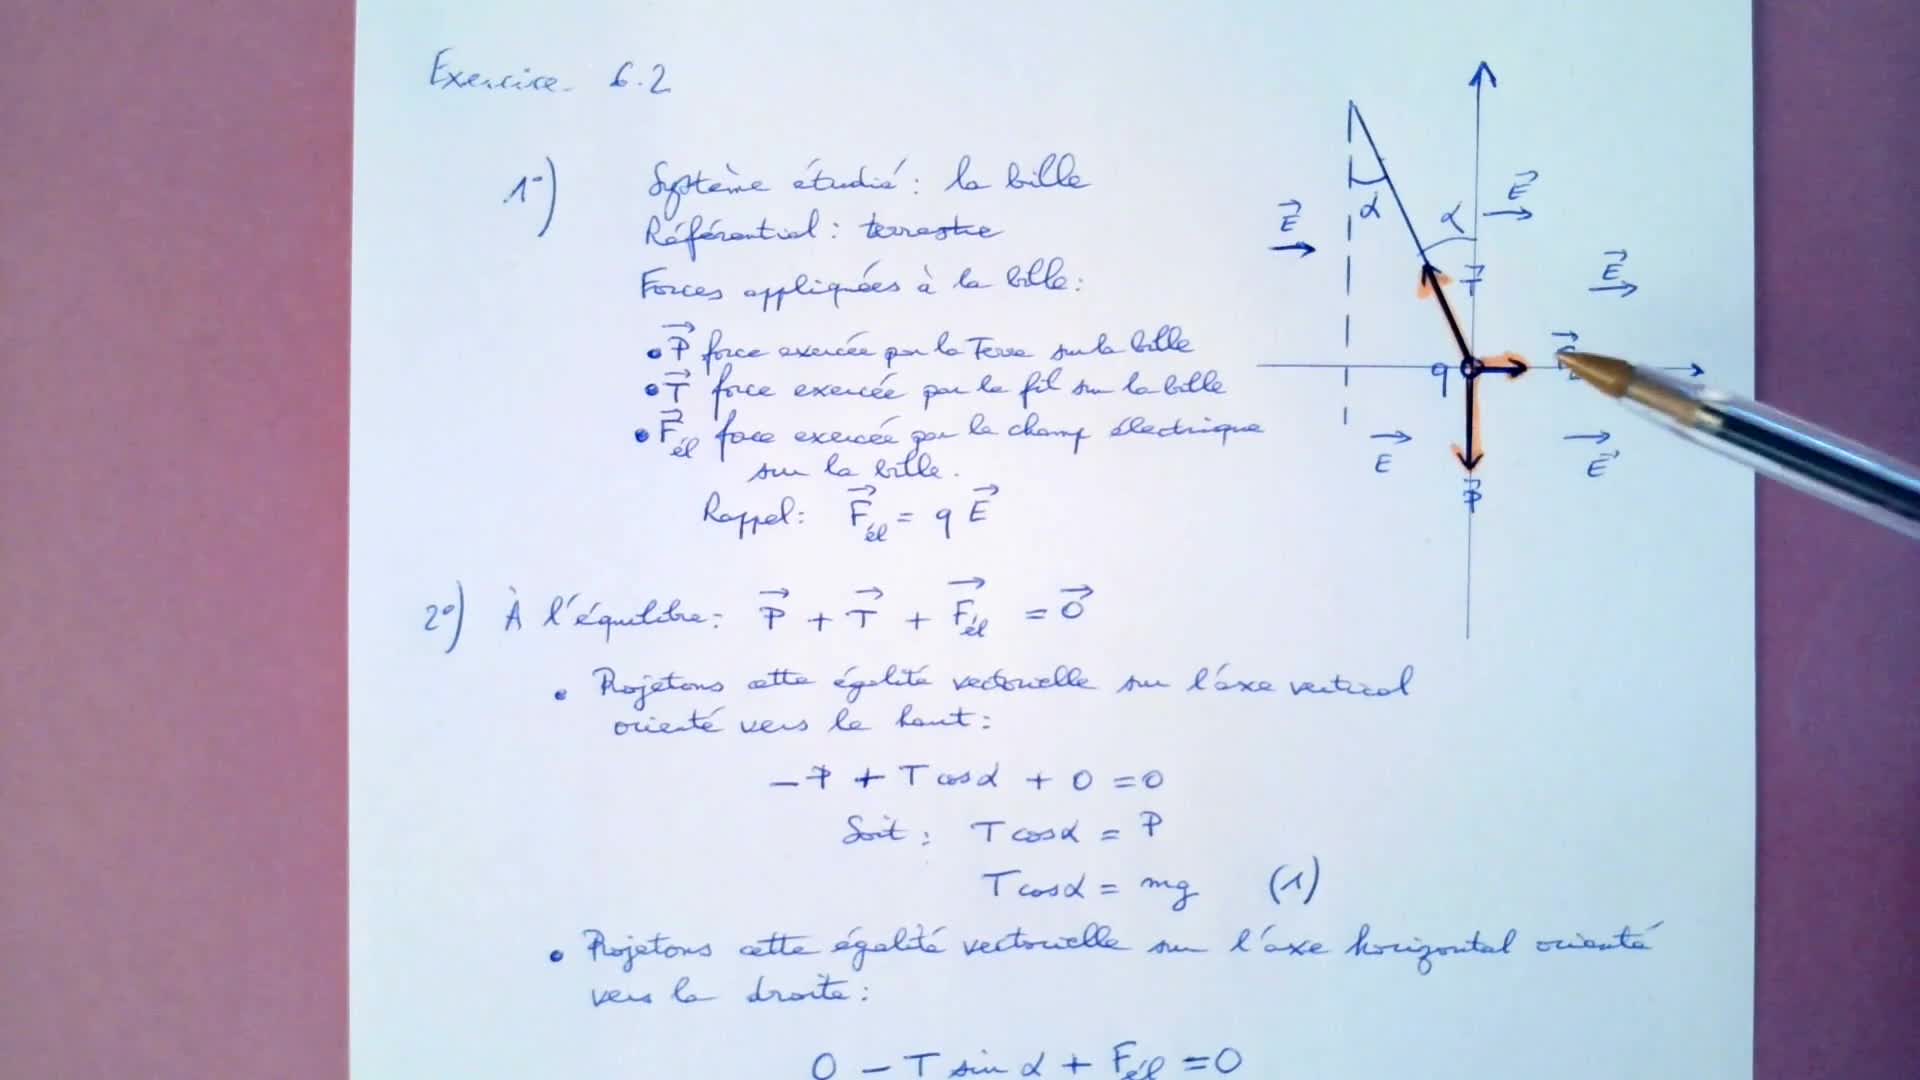 Exercice 6.2
1°) Système étudié : la bille
Référentiel : terrestre
Forces appliquées à la bille :
• P force exercée par la Terre sur la bille
• T force exercée par le fil sur la bille
• Fél force exercée par le champ électrique
sur la bille.
Rappel : Fél = q E
2°) À l'équilibre : P + T + Fél = 0
• Projetons cette égalité vectorielle sur l'axe vertical
orienté vers le haut :
− P + T cos α + 0 = 0
Soit : T cos α = P
T cos α = mg (1)
• Projetons cette égalité vectorielle sur l'axe horizontal orienté
vers la droite :
0 − T sin α + Fél = 0
α
α
E
E
E
T
q
E
E
P